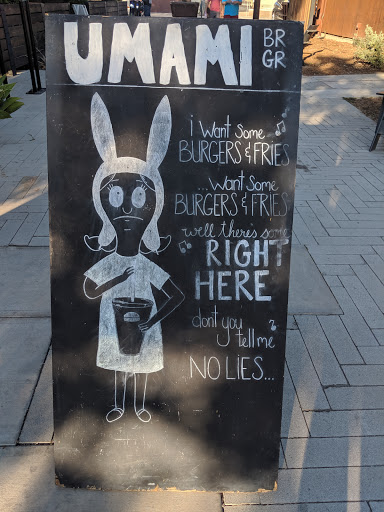 UMAMI BR
GR
i want some
BURGERS & FRIES
...want some
BURGERS & FRIES
well there's some
RIGHT
HERE
don't you
tell me
NO LIES...